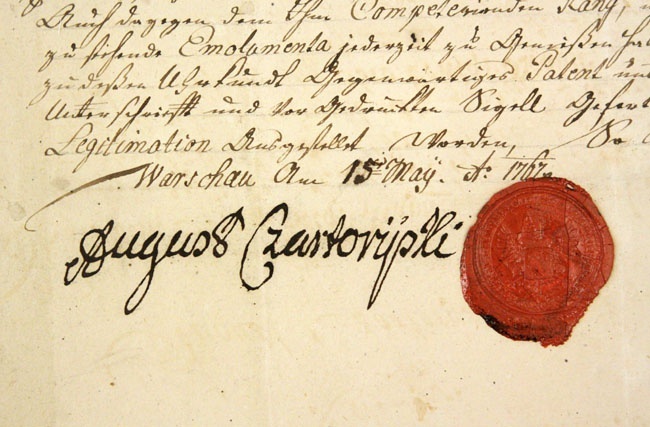 Auch dagegen dem Ihm Competirenden Rang,
zu stehende Emolumenta jederzeit zu Genießen
zu deßen Uhrkundt Gegenwärtiges Patent
Unterschrifft und Vor Gedruckten Sigell
Legitimation Ausgestellet Worden, So
Warschau Am 15ten May. Ao. 1767.
August Czartoryski